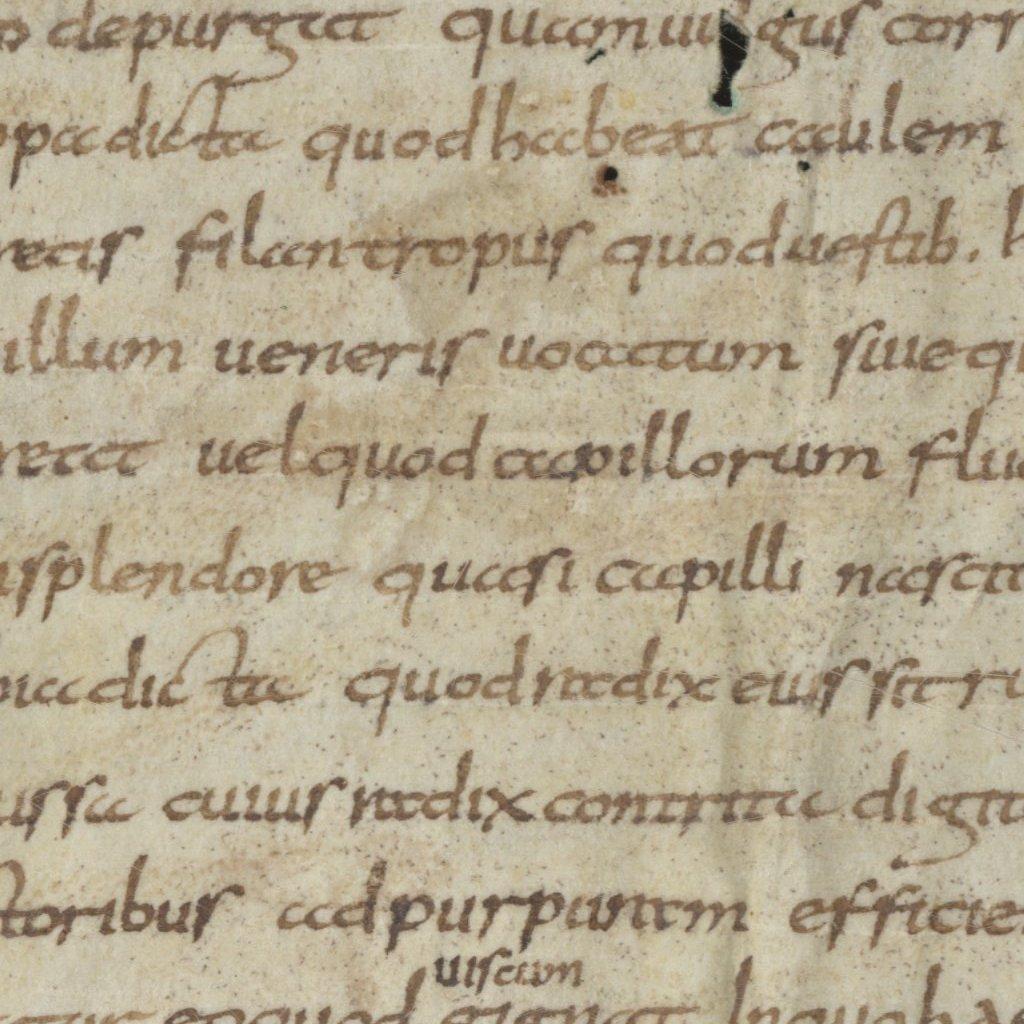 o depurgat quam uulgus corr
opa dicta quod habeat caulem
retis filantropus quod uestib. h
illum ueneris uocatum siue qu
retat uel quod capillorum flu
splendore quasi capilli nascit
ia dicta quod radix eius sit ru
ussa cuius radix contrita digit
toribus ad purpuram efficie
uiscum
tur eo quod gignat In quo h